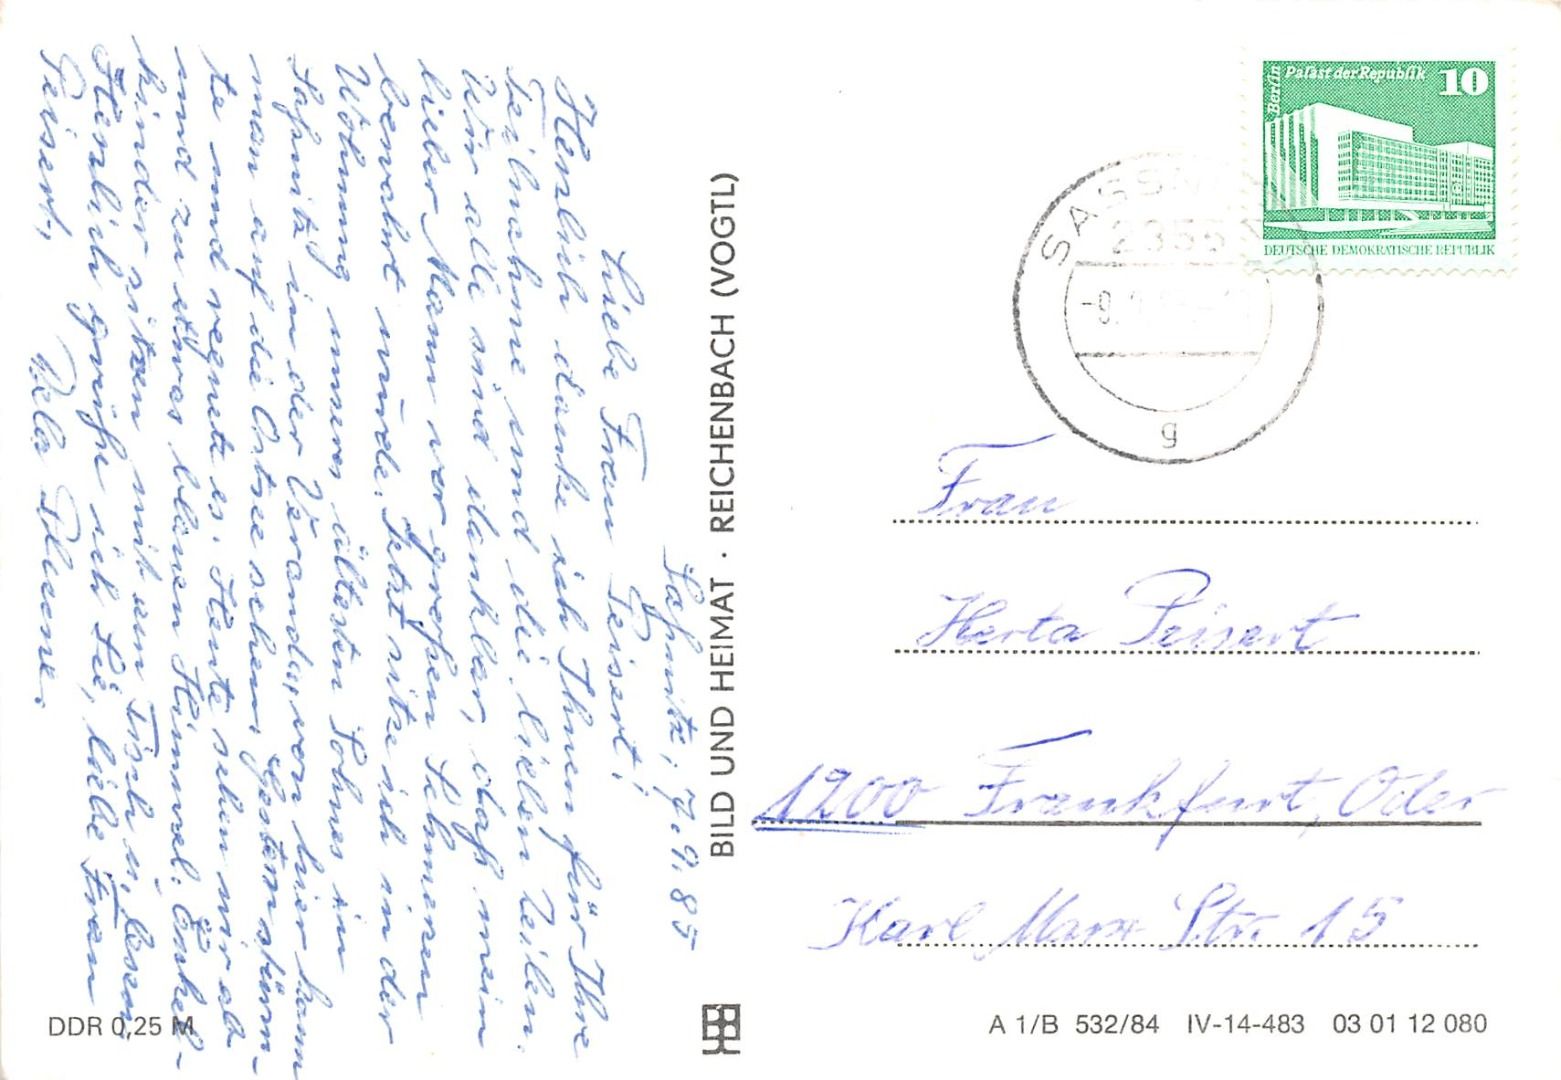 Saßnitz, 7.9.85
Liebe Frau Peisert!
Herzlich danke ich Ihnen für Ihre
Teilnahme und die lieben Zeilen.
Wir alle sind dankbar, daß mein
lieber Mann vor großen Schmerzen
bewahrt wurde. Jetzt sitze ich in der
Wohnung unseres ältesten Sohnes in
Saßnitz in der Veranda, von hier kann
man auf die Ostsee sehen. Gestern stürm-
te und regnete es. Heute sehen wir ab
und zu etwas blauen Himmel. Enkel-
kinder sitzen mit am Tisch u. lesen.
Herzlich grüße ich Sie, liebe Frau
Peisert,
BILD UND HEIMAT · REICHENBACH (VOGTL)
Berlin
Palast der Republik
10
DEUTSCHE DEMOKRATISCHE REPUBLIK
SASSNITZ
2355
g
Frau
Herta Peisert
1200 Frankfurt, Oder
Karl Marx Str. 15
DDR 0,25 M
A 1/B 532/84 IV-14-483 03 01 12 080